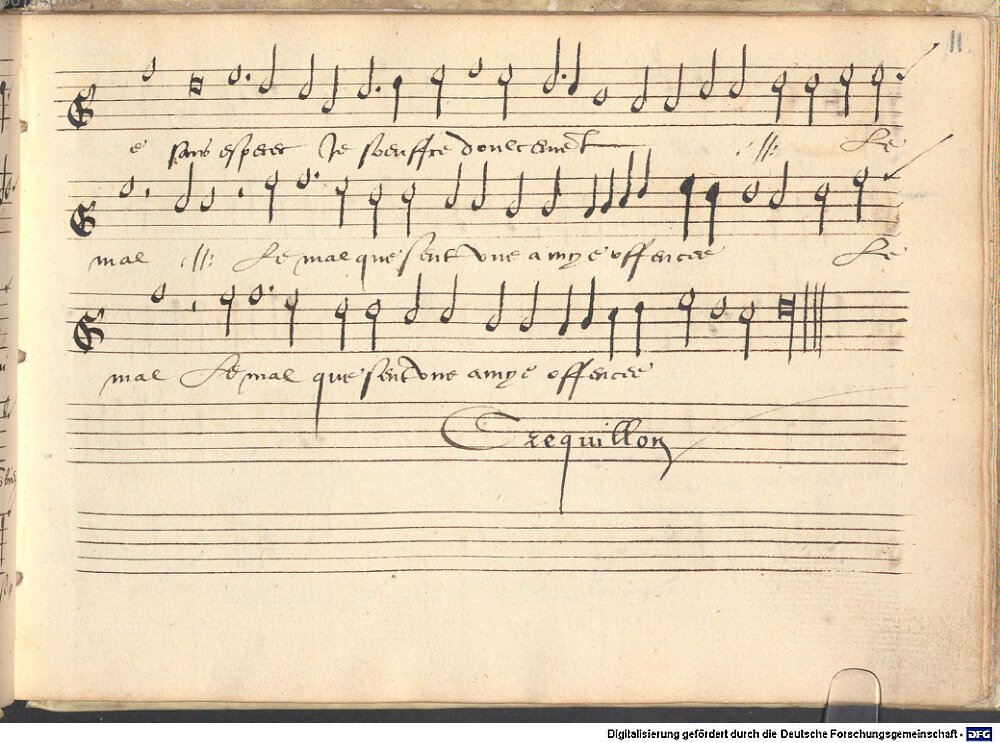 11
e sans esperer Je souffre doulcement .//: Le
mal .//: Le mal que sent une amye offencee Le
mal Le mal que sent une amye offencee
Crequillon
Digitalisierung gefördert durch die Deutsche Forschungsgemeinschaft - DFG